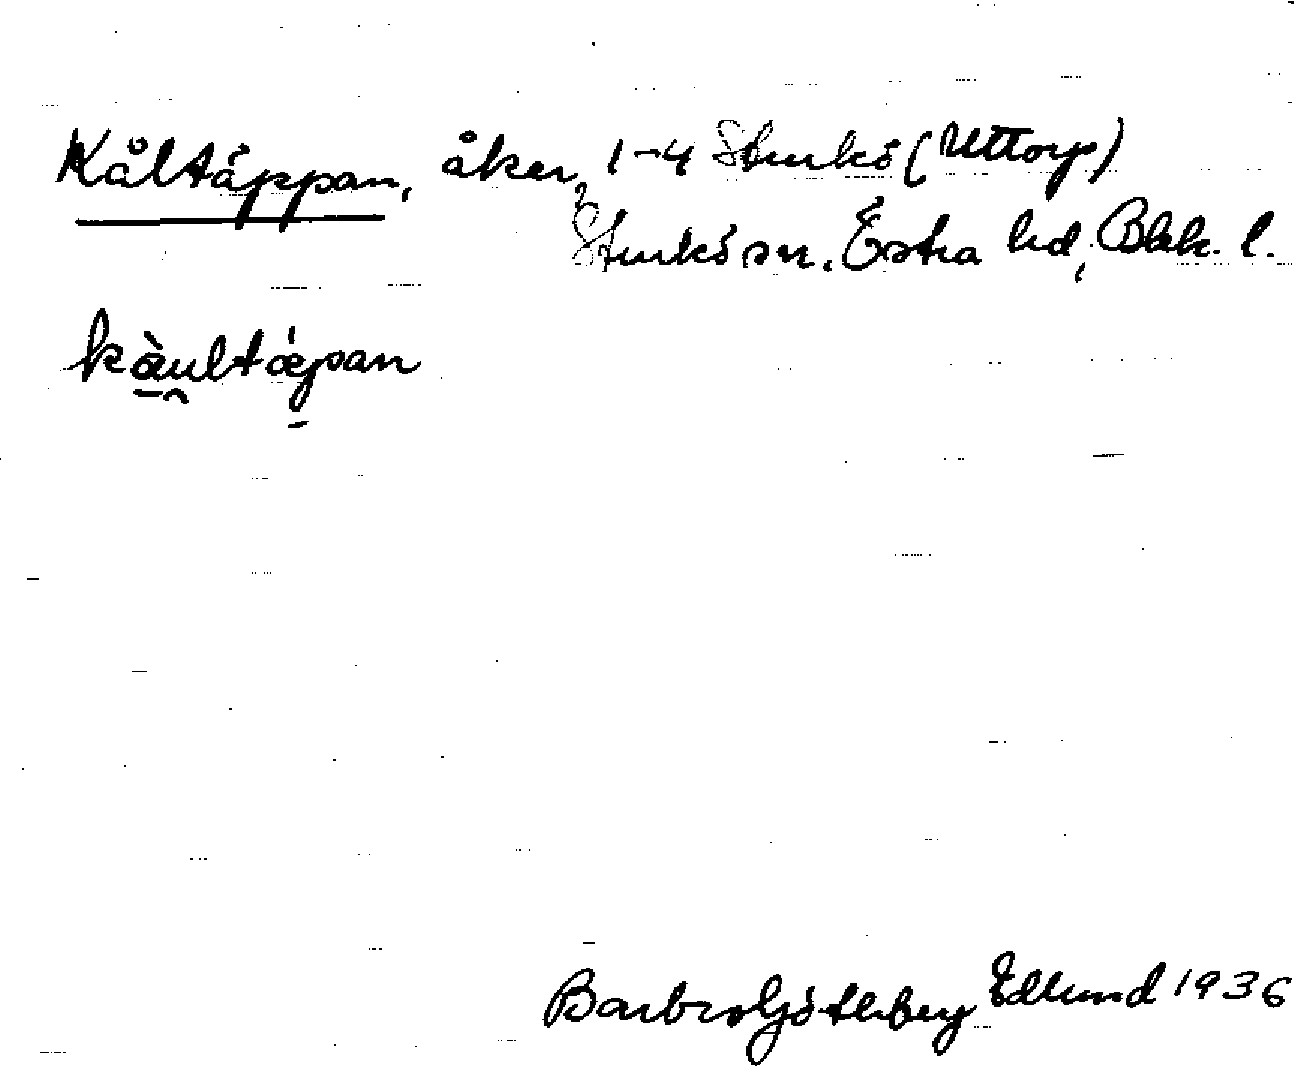 Kåltäppan, åker, 1-4 Sturkö (Uttorp)
Sturkö sn. Östra hd, Blek. l.
kàultǽpan
Barbro Götheberg Edlund 1936